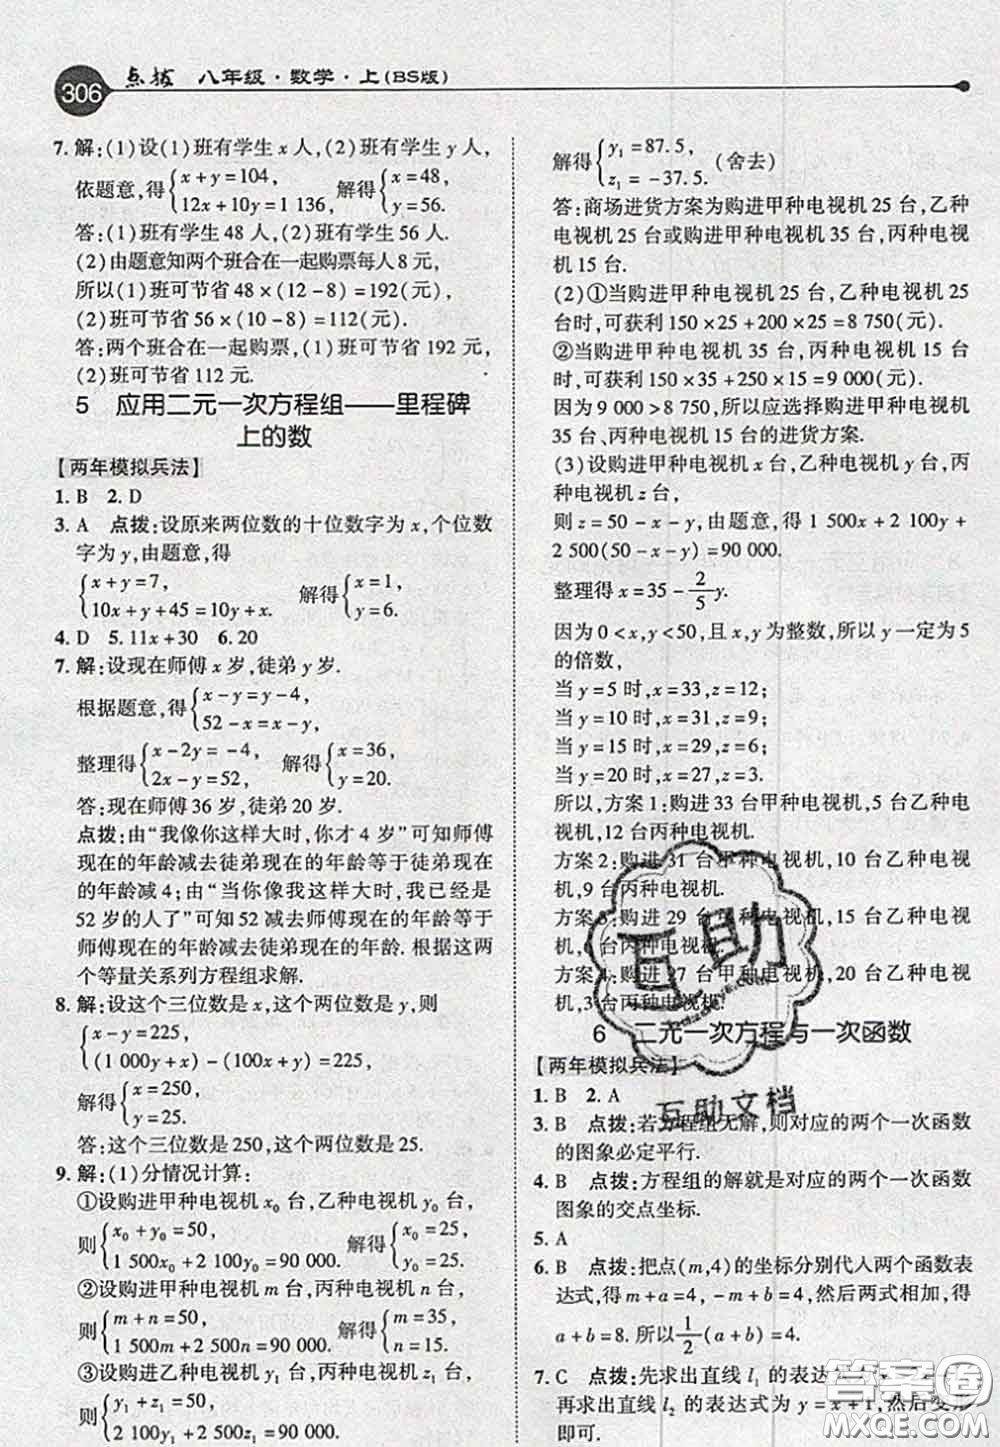 306 点拨 八年级·数学·上(BS版)
7. 解:(1)设(1)班有学生 x 人,(2)班有学生 y 人,
依题意,得{x+y=104, 12x+10y=1 136, 解得{x=48, y=56.
答:(1)班有学生 48 人,(2)班有学生 56 人.
(2)由题意知两个班合在一起购票每人8元,
所以(1)班可节省 48×(12-8)=192(元),
(2)班可节省 56×(10-8)=112(元).
答:两个班合在一起购票,(1)班可节省 192 元,
(2)班可节省 112 元.
5 应用二元一次方程组——里程碑
上的数
【两年模拟兵法】
1. B 2. D
3. A 点拨:设原来两位数的十位数字为 x,个位数
字为 y,由题意,得
{x+y=7, 10x+y+45=10y+x. 解得{x=1, y=6.
4. D 5. 11x+30 6. 20
7. 解:设现在师傅 x 岁,徒弟 y 岁.
根据题意,得{x-y=y-4, 52-x=x-y.
整理得{x-2y=-4, 2x-y=52, 解得{x=36, y=20.
答:现在师傅 36 岁,徒弟 20 岁.
点拨:由“我像你这样大时,你才 4 岁”可知师傅
现在的年龄减去徒弟现在的年龄等于徒弟现在
的年龄减 4;由“当你像我这样大时,我已经是
52 岁的人了”可知 52 减去师傅现在的年龄等于
师傅现在的年龄减去徒弟现在的年龄. 根据这两
个等量关系列方程组求解.
8. 解:设这个三位数是 x,这个两位数是 y,则
{x-y=225, (1 000y+x)-(100x+y)=225,
解得{x=250, y=25.
答:这个三位数是 250,这个两位数是 25.
9. 解:(1)分情况计算:
①设购进甲种电视机 x₀ 台,乙种电视机 y₀ 台,
则{x₀+y₀=50, 1 500x₀+2 100y₀=90 000. 解得{x₀=25, y₀=25.
②设购进甲种电视机 m 台,丙种电视机 n 台,
则{m+n=50, 1 500m+2 500n=90 000. 解得{m=35, n=15.
③设购进乙种电视机 y₁ 台,丙种电视机 z₁ 台,
则{y₁+z₁=50, 2 100y₁+2 500z₁=90 000.
解得{y₁=87.5, z₁=-37.5. (舍去)
答:商场进货方案为购进甲种电视机 25 台,乙种
电视机 25 台或购进甲种电视机 35 台,丙种电视
机 15 台.
(2)①当购进甲种电视机 25 台,乙种电视机 25
台时,可获利 150×25+200×25=8 750(元);
②当购进甲种电视机 35 台,丙种电视机 15 台
时,可获利 150×35+250×15=9 000(元).
因为 9 000>8 750,所以应选择购进甲种电视机
35 台、丙种电视机 15 台的进货方案.
(3)设购进甲种电视机 x 台,乙种电视机 y 台,丙
种电视机 z 台,
则 z=50-x-y,由题意,得 1 500x+2 100y+
2 500(50-x-y)=90 000.
整理得 x=35-2/5y.
因为 0<x,y<50,且 x,y 为整数,所以 y 一定为 5
的倍数,
当 y=5 时,x=33,z=12;
当 y=10 时,x=31,z=9;
当 y=15 时,x=29,z=6;
当 y=20 时,x=27,z=3.
所以,方案 1:购进 33 台甲种电视机,5 台乙种电
视机,12 台丙种电视机.
方案 2:购进 31 台甲种电视机,10 台乙种电视
机,9 台丙种电视机.
方案 3:购进 29 台甲种电视机,15 台乙种电视
机,6 台丙种电视机.
方案 4:购进 27 台甲种电视机,20 台乙种电视
机,3 台丙种电视机.
6 二元一次方程与一次函数
【两年模拟兵法】
1. B 2. A
3. B 点拨:若方程组无解,则对应的两个一次函数
的图象必定平行.
4. B 点拨:方程组的解就是对应的两个一次函数
图象的交点坐标.
5. A
6. B 点拨:把点(m,4)的坐标分别代人两个函数表
达式,得 m+a=4,-m+b=4,然后两式相加,得
a+b=8. 所以1/2(a+b)=4.
7. C 点拨:先求出直线 l₁ 的表达式
再求出直线 l₂ 的表达式为 y=x+1,然后变形
即可.
互助
互助文档
答案圈
MXQE.COM